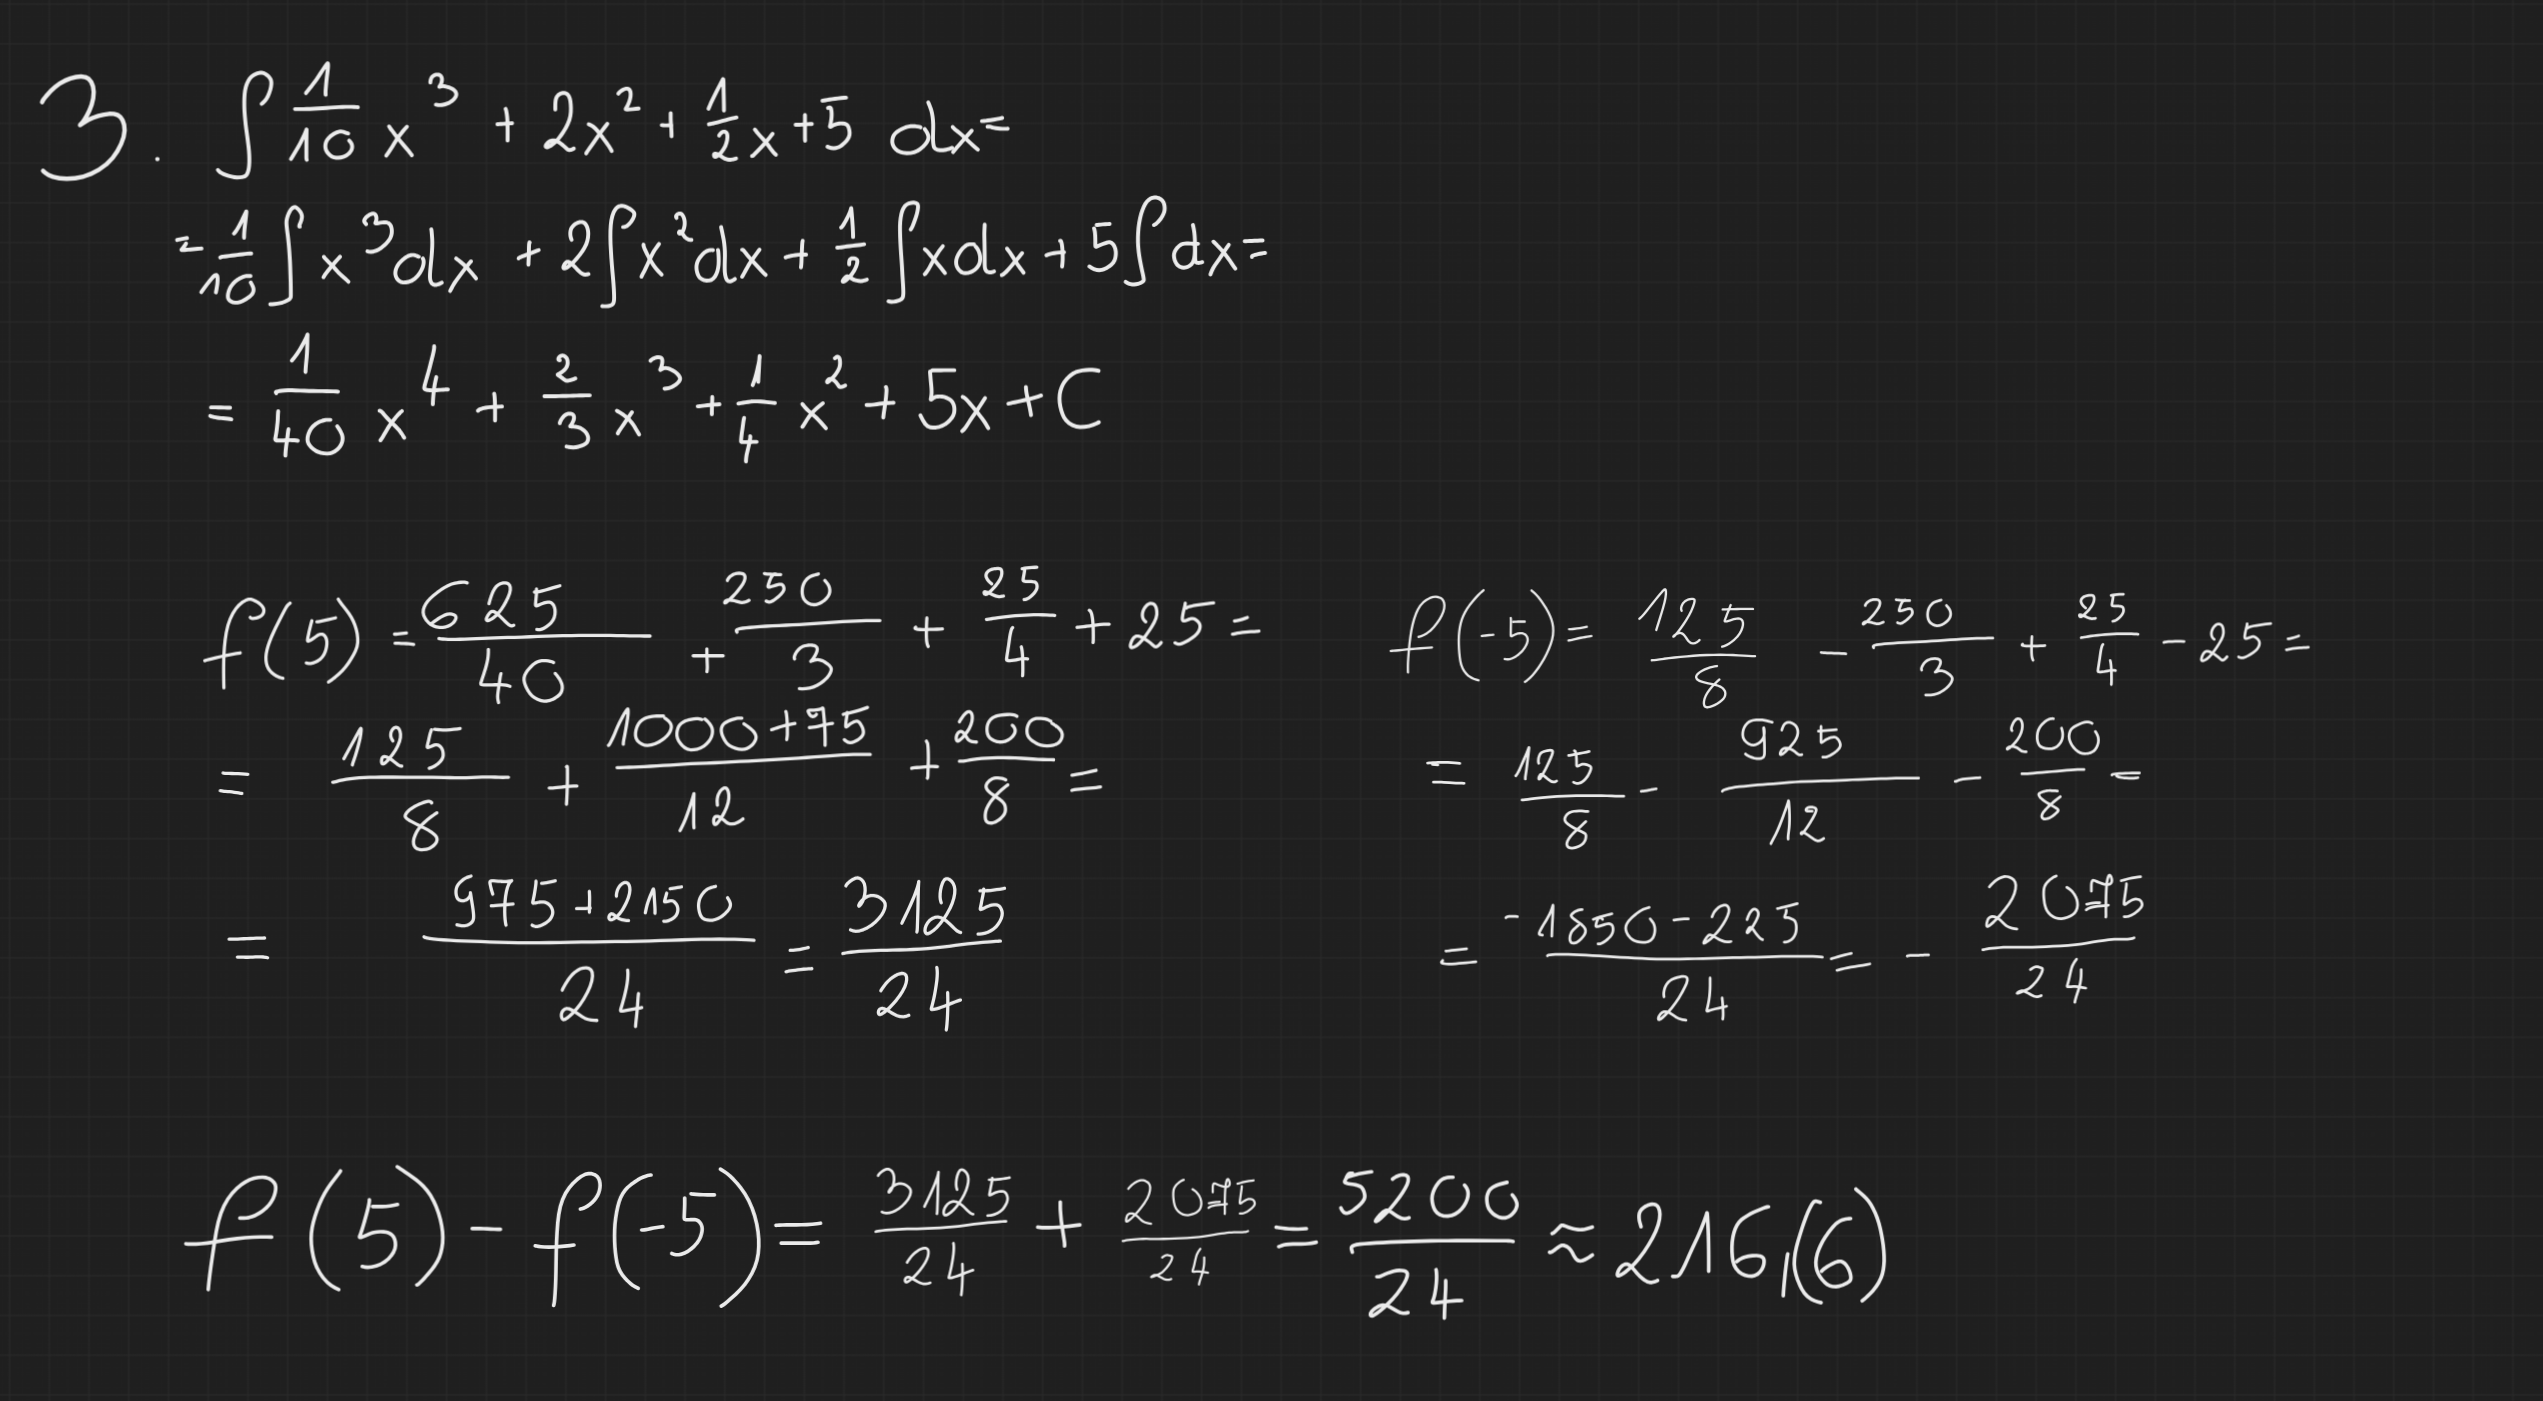 3. ∫ 1/10 x³ + 2x² + 1/2 x + 5 dx =
= 1/10 ∫ x³ dx + 2 ∫ x² dx + 1/2 ∫ x dx + 5 ∫ dx =
= 1/40 x⁴ + 2/3 x³ + 1/4 x² + 5x + C
f(5) = 625/40 + 250/3 + 25/4 + 25 =
= 125/8 + (1000+75)/12 + 200/8 =
= (975+2150)/24 = 3125/24
f(-5) = 125/8 - 250/3 + 25/4 - 25 =
= 125/8 - 925/12 - 200/8 =
= (-1850-225)/24 = - 2075/24
f(5) - f(-5) = 3125/24 + 2075/24 = 5200/24 ≈ 216,(6)